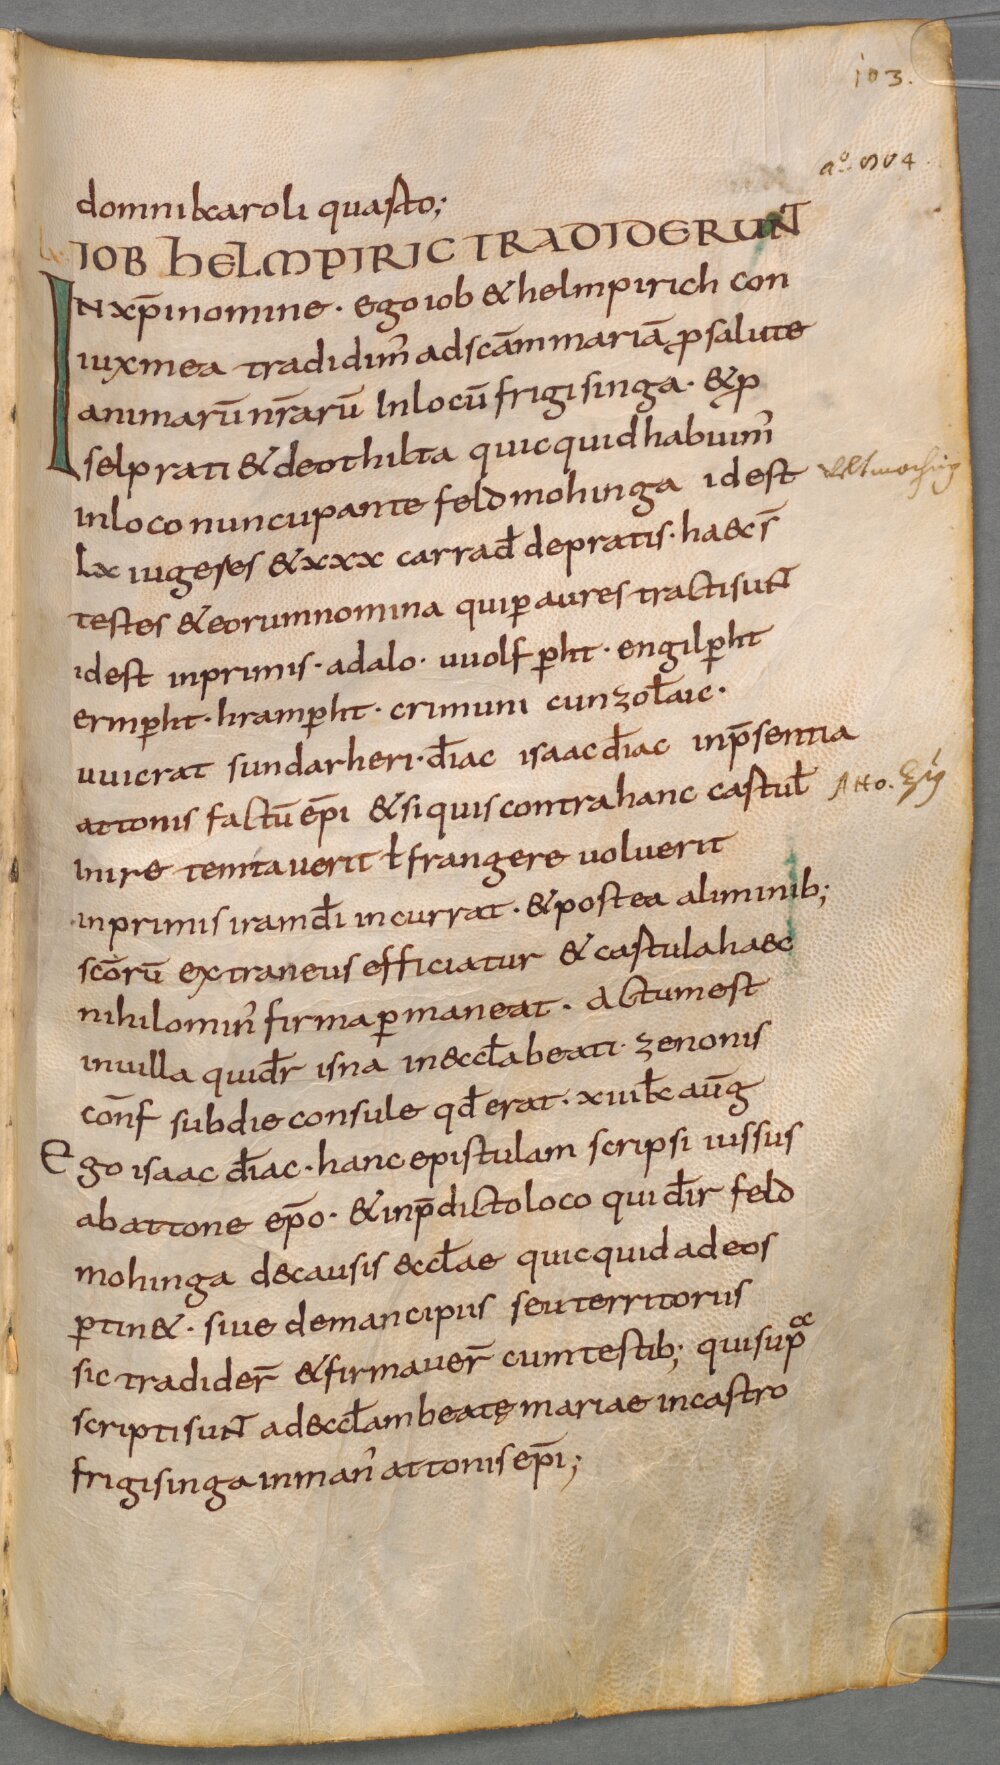 103.
aº. 804.
domni karoli quarto;
IOB HELMPIRIC TRADIDERUNT
IN xp̄i nomine · ego iob & helmpirich con
iux mea tradidim̄ ad sc̄am mariā ꝓ salute
animarū nr̄arū In locū frigisinga · & ꝓ
selprati & deothilta quicquid habuim̄
in loco nuncupante feldmohinga id est
Lx iugeses & xxx carrad̄ de pratis · haec s̄
testes & eorum nomina qui ꝑ aures tracti sunt
id est inprimis · adalo · uuolfꝑht · engilꝑht
ermꝑht · hramꝑht · crimuni cunzolt̄ laic ·
uuicrat sundarheri · diac̄ isaac diac̄ in p̄sentia
attonis factū ep̄i & si quis contra hanc castul̄
Inire temtaverit ł frangere uoluerit
inprimis iram dī incurrat · & postea a liminib;
sc̄orū extraneus efficiatur & castula haec
nihilomin̄ firma ꝑmaneat · Actum est
in uilla qui dr̄ isna in eccl̄a beati · zenonis
conf̄ sub die consule qđ erat · xvii kł auḡ
Ego isaac diac̄ · hanc epistulam scripsi iussus
ab attone ep̄o · & in p̄dicto loco qui dīr feld
mohinga de causis eccl̄ae quicquid ad eos
ꝑtin& · siue de mancipiis seu territoriis
sic tradider̄ & firmauer̄ cum testib; qui sup̄
scripti sunt ad eccl̄am beatę mariae in castro
frigisinga in man̄ attonis ep̄i;
Atto. Ep̄